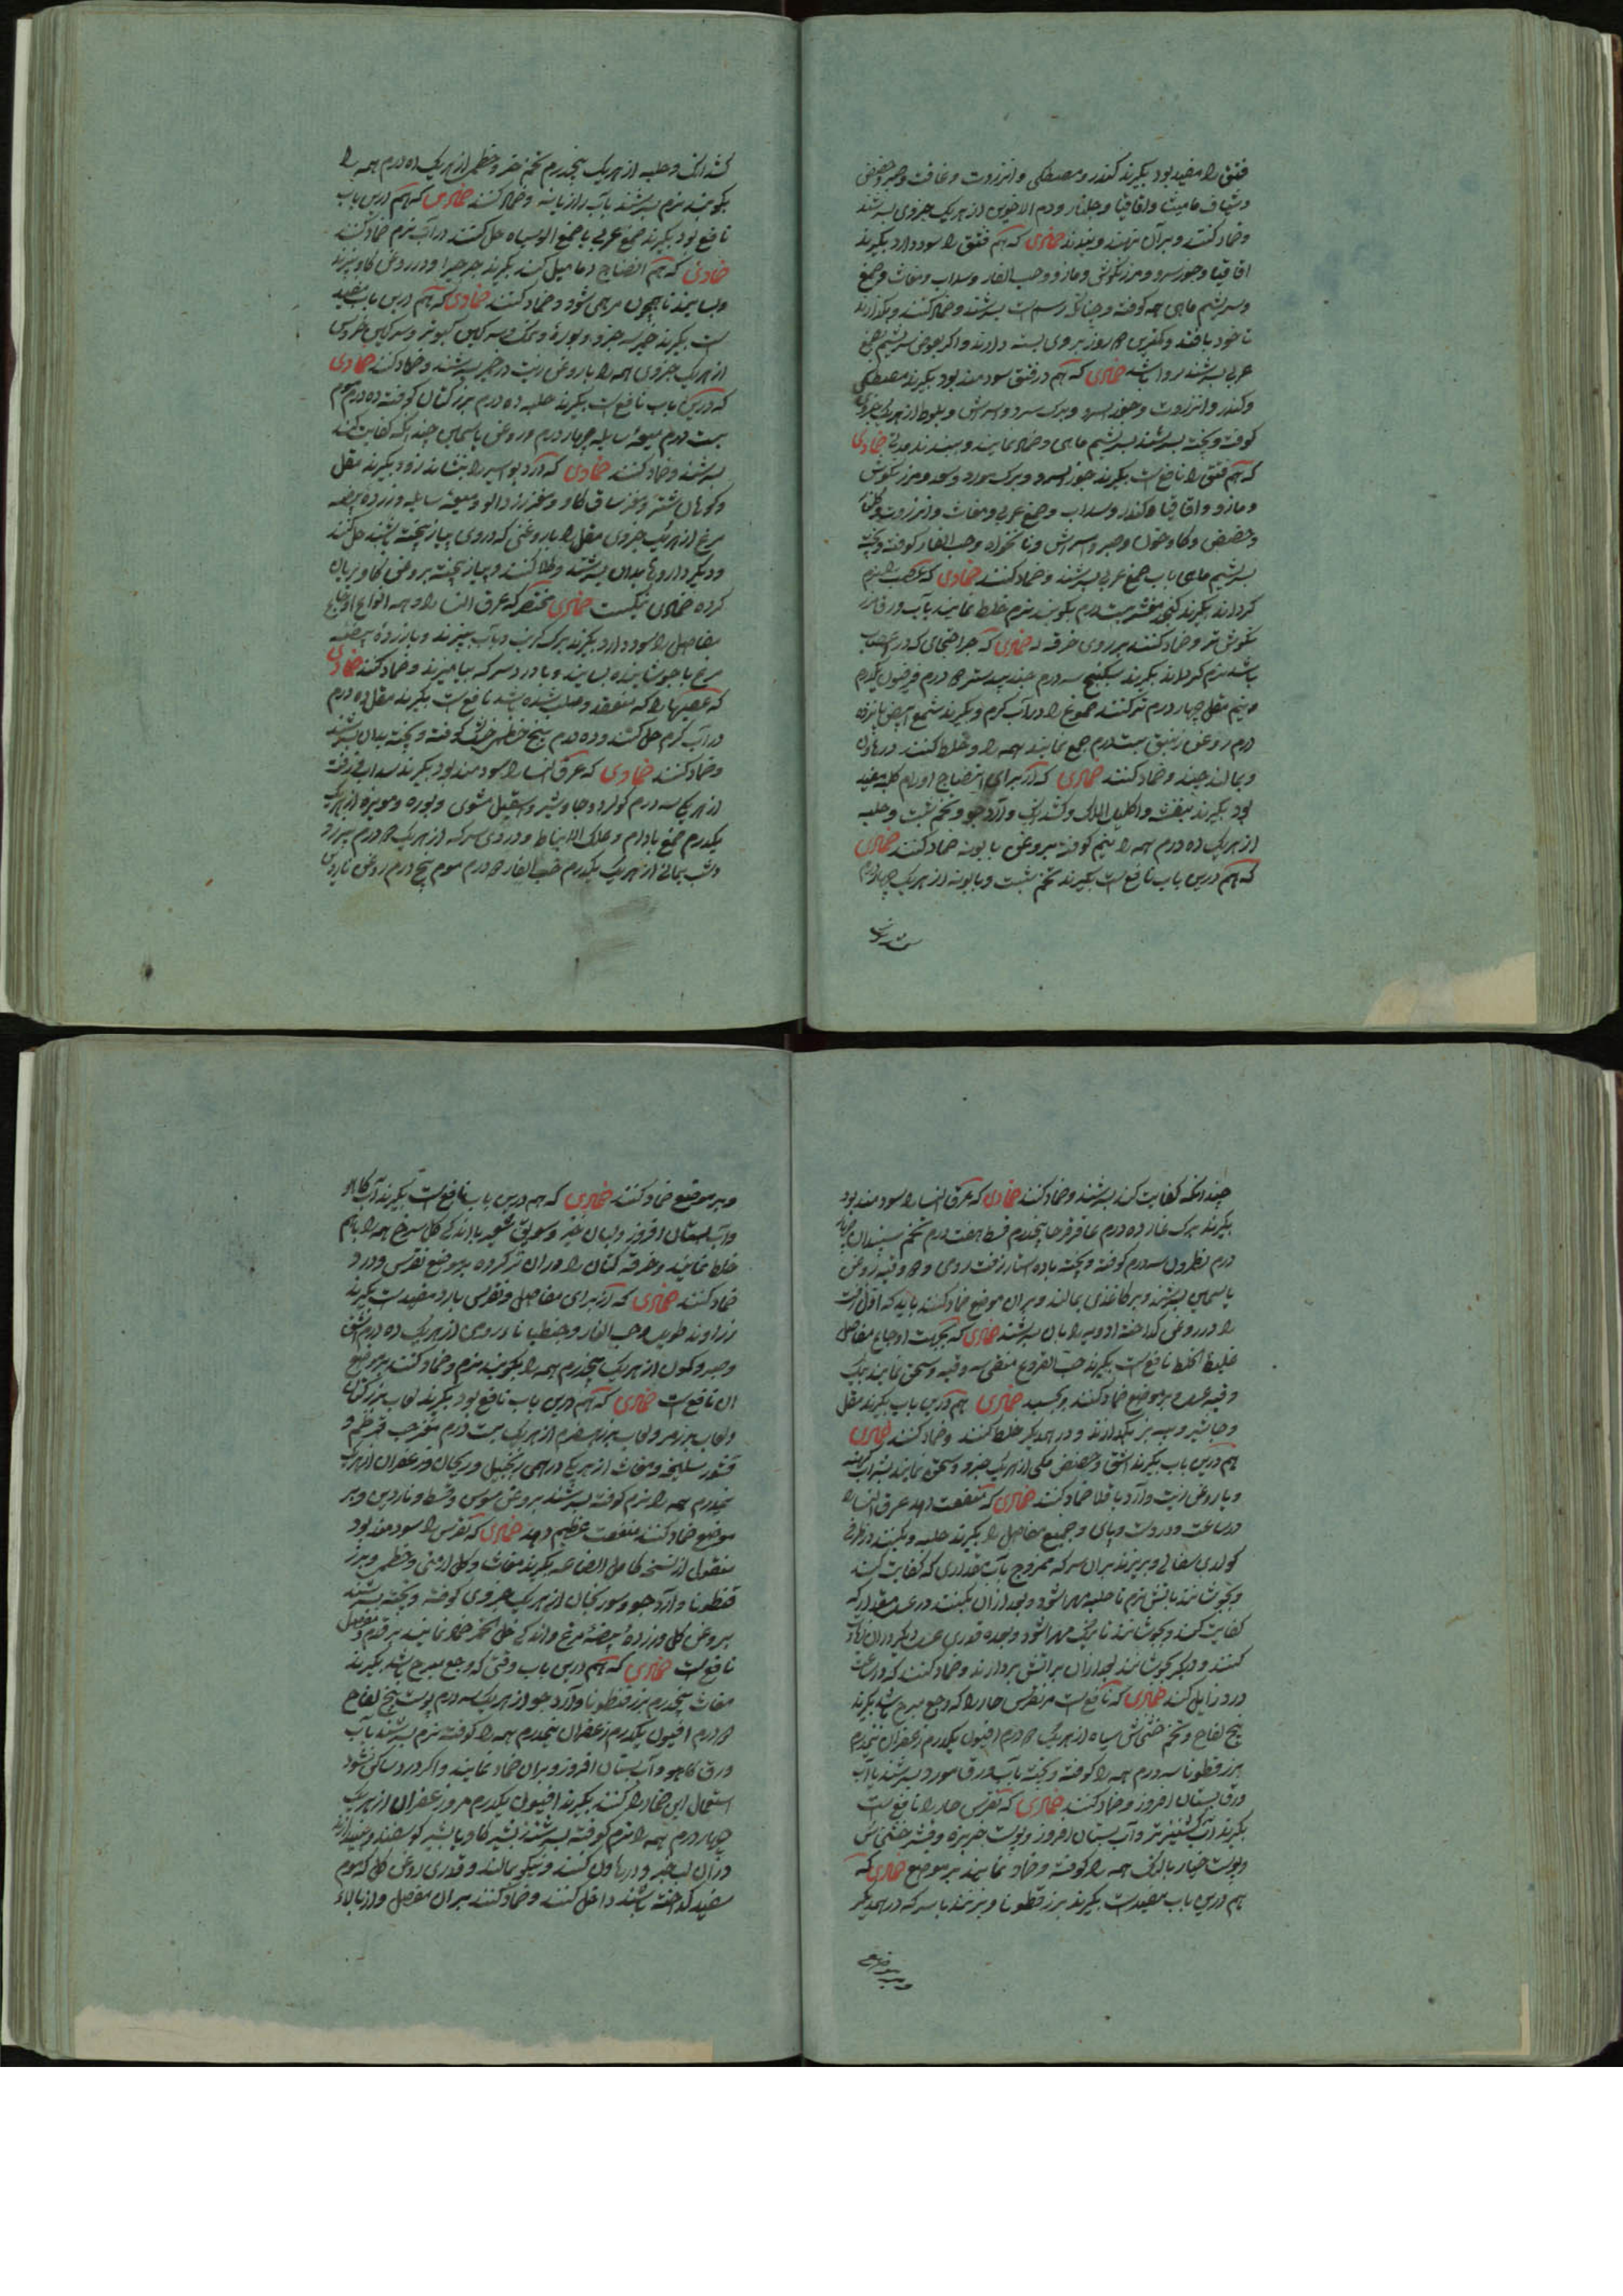 فتق را مفید بود بگیرند کندر و مصطکی و انزروت و غافت و صبر و حضض
و شیاف مامیثا و اقاقیا و جلنار و دم الاخوین از هر یک جزوی بسرشند
و ضماد کنند و بر آن نهند و ببندند ضمادی که هم فتق را سود دارد بگیرند
اقاقیا و جوز سرو و مرزنکوش و مازو و حب الغار و سداب و مغاث و صمغ
و سریشم ماهی همه کوفته و چنانکه رسم است بسرشند و ضماد کنند و بگذارند
تا خود بافتد و کمترین روز بر وی بسته دارند و اگر بعوض سریشم صمغ
عربی بسرشند روا باشد ضمادی که هم در فتق سودمند بود بگیرند مصطکی
و کندر و انزروت و جوز السرو و برک سرو و سرش و بلوط از هر یک جزوی
کوفته و بیخته بسریشم ماهی و ضماد نمایند و ببندند مدتی ضمادی
که هم فتق را نافع است بگیرند جوز السرو و برک مورد و سعد و مرزنکوش
و مازو و اقاقیا و کندر و سداب و صمغ عربی و مغاث و انزروت
و حضض و صبر و سرش و نانخواه و حب الغار کوفته و بیخته
بسریشم ماهی با صمغ عربی بسرشند و ضماد کنند ضمادی که عصب را نرم
کرداند بگیرند کنجد مقشر بیست درم بکوبند نرم خلط نمایند بآب ورق
تر و ضماد کنند بر روی خرقه ضمادی که جراحتهای که در اعصاب
باشد نرم کرداند بگیرند سکبینج سه درم جندبیدستر درم فرفیون یکدرم
و نیم مقل چهار درم تر کنند صموغ را در آب کرم و بگیرند شمع ابیض پانزده
درم روغن زنبق بیست درم جمع نمایند همه را و خلط کنند در هاون
و بمالند چند و ضماد کنند ضمادی که از برای انضاج اورام کلیه مفید
بود بگیرند بنفشه و اکلیل الملک و کثیرا و آرد جو و تخم شبت و حلبه
از هر یک ده درم همه را نیم کوفته بروغن بابونه ضماد کنند ضمادی
که هم درین باب نافع است بگیرند تخم شبت و بابونه از هر یک چهار درم
و حلبه از هر یک پنجدرم تخم و خطمی از هر یک ده درم همه را
بکوبند نرم بسرشند بآب رازیانه و ضماد کنند ضمادی که هم درین باب
نافع بود بگیرند صمغ عربی یا صمغ الو سیاه حل کنند در آب نرم ضماد کنند
ضمادی که هم انضاج دمامیل کند بگیرند و در روغن کاو بپزند
و بسایند تا همچون مرهمی شود و ضماد کنند ضمادی که هم درین باب مفید
است بگیرند خمیر سه جزو و بوره و نمک و سرکین کبوتر و سرکین خروس
از هر یک جزوی همه را با روغن زیت در خمیر بسرشند و ضماد کنند ضمادی
که درین باب نافع است بگیرند حلبه ده درم بزر کتان کوفته ده درم موم
بیست درم میعه سایله چهار درم و روغن یاسمین چندانکه کفایت کند
بسرشند و ضماد کنند ضمادی که درد بواسیر را بنشاند زود بگیرند مقل
و کوهان شتر و مغز ساق کاو و مغز زردالو و میعه سایله و زرده بیضه
مرغ از هر یک جزوی مقل را با روغنی که در وی پیاز پخته باشند حل کنند
و دیکر داروها بدان بسرشند و طلا کنند و پیاز پخته بروغن کاو بریان
کرده ضمادی نیکست ضمادی مختصر که عرق النسا را و همه انواع اوجاع
مفاصل را سود دارد بگیرند برک کرنب و بآب بپزند و با زرده بیضه
مرغ بسایند و با درد سرکه بیامیزند و ضماد کنند ضمادی
که عصبها را که منعقد و صلب شده باشد نافع است بگیرند مقل ده درم
در آب کرم حل کنند و ده درم بیخ خطمی کوفته و بیخته بدان بسرشند
و ضماد کنند ضمادی که عرق النسا را سودمند بود بگیرند سداب و زفت
از هر یک سه درم کوکرد و جاوشیر و اسقیل مشوی و بوره و مویزه از هر یک
یکدرم صمغ بادام و علک الانباط و دردی سرکه از هر یک درم
و شب یمانی از هر یک یکدرم حب الغار درم موم پنج درم روغن ناردین
چندانکه کفایت کند بسرشند و ضماد کنند ضمادی که عرق النسا را سودمند بود
بگیرند برک غار ده درم عاقرقرحا پنجدرم قسط هفت درم تخم سپندان چهار
درم نطرون سه درم کوفته و بیخته با ده استار زفت رومی و وقیه روغن
یاسمین بسرشند و بر کاغذی بمالند و بر آن موضع ضماد کنند باید که اول زفت
را در روغن کداخته ادویه را بآن بسرشند ضمادی که بجهت اوجاع مفاصل
غلیظ الخلط نافع است بگیرند حب الخروع منقی سه وقیه و سحق نمایند بیک
وقیه عسل و بر موضع ضماد کنند و بچسبد ضمادی هم درین باب بگیرند مقل
و جاوشیر و پیه بز بگدازند و در یکدیکر خلط کنند و ضماد کنند ضمادی
هم درین باب بگیرند اشق و حضض مکی از هر یک جزو و سحق نمایند بشراب کهنه
و با روغن زیت و آرد باقلا ضماد کنند ضمادی که منفعت دهد عرق النسا را
در ساعت و درد دست و پای و جمیع مفاصل را بگیرند حلبه و بکنند در ظرفی
کوارهٔ سفالی و بریزند بر آن سرکه ممزوج بآب بمقداری که کفایت کند
و بجوشانند بآتش نرم تا حلبه مهرا شود و بعد از آن بکنند در عسل بمقداری که
کفایت کند و بجوشانند تا نیک مهرا شود و بعده قدری عسل دیکر در آن زیادت
کنند و دیکر بجوشانند بعد از آن برآتش بردارند و ضماد کنند که در ساعت
درد زایل کند ضمادی که نافع است مر نقرس حار را که وجع مبرح باشد بگیرند
بیخ لفاح و تخم خشخاش سیاه از هر یک درم افیون یکدرم زعفران نیمدرم
بزرقطونا سه درم همه را کوفته و بیخته بآب ورق مورد بسرشند یا آب
ورق بستان افروز و ضماد کنند ضمادی که نقرس حار را نافع است
بگیرند آب کشنیز تر و آب بستان افروز و پوست خربزه و قشر خشخاش
و پوست خیار بالنک همه را کوفته و ضماد نمایند بر موضع ضمادی که
هم درین باب مفید است بگیرند بزرقطونا و بپزند با سرکه در یکدیکر
و بر موضع ضماد کنند ضمادی که هم درین باب نافع است بگیرند آب کاهو
و آب بستان افروز و لباب خبز و سویق شعیر با اندکی کل سرخ همه را باهم
خلط نمایند و خرقه کتان را در آن تر کرده بر موضع نقرس و درد
ضماد کنند ضمادی که از برای مفاصل و نقرس بارد مفید است بگیرند
زراوند طویل و حب الغار و جنطیانا رومی از هر یک ده درم اشق
و صبر و کمون از هر یک پنجدرم همه را بکوبند نرم و ضماد کنند بر موضع
الم نافع است ضمادی که هم درین باب نافع بود بگیرند لعاب بزر کتان
و لعاب بزر مرو و لعاب بزر از هر یک بیست درم مغز حب قرطم و
قشور سلیخه و مغاث از هر یک درهمی زنجبیل و ریحان و زعفران از هر یک
نیمدرم همه را نرم کوفته بسرشند بروغن سوسن و قسط و ناردین و بر
موضع ضماد کنند منفعت عظیم دهد ضمادی که نقرس را سودمند بود
منقول از نسخه کامل الصناعه بگیرند مغاث و کل ارمنی و خطمی و بزر
قطونا و آرد جو و سورنجان از هر یک جزوی کوفته و بیخته بسرشند
بروغن کل و زرده بیضه مرغ و اندکی خل خمر ضماد نمایند بر قدم و مفصل
نافع است ضمادی که هم درین باب وقتی که وجع مبرح باشد بگیرند
مغاث پنجدرم بزرقطونا و آرد جو از هر یک سه درم پوست بیخ لفاح
درم افیون یکدرم زعفران نیمدرم همه را کوفته نرم بسرشند بآب
ورق کاهو و آب بستان افروز و بر آن ضماد نمایند و اگر درد ساکن نشود
استعمال این ضماد را کنند بگیرند افیون یکدرم مر و زعفران از هر یک
چهار درم همه را نرم کوفته بسرشند بشیر کاو یا بشیر کوسفند و بیندازند
در آن لب خبز و در هاون کنند و نیکو بمالند و قدری روغن کل که موم
سفید کداخته باشند داخل کنند و ضماد کنند بر آن مفصل و از بالاء